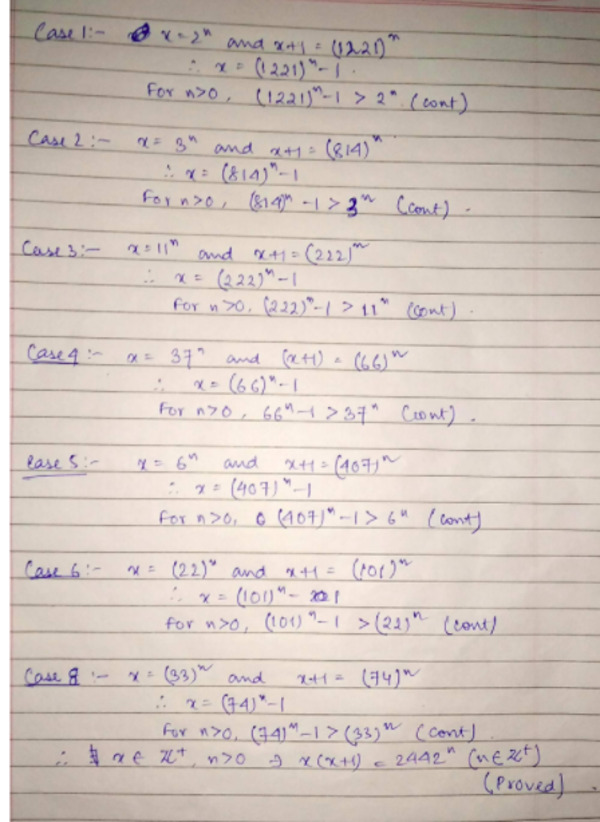 Case 1:- x = 2ⁿ and x+1 = (1221)ⁿ
∴ x = (1221)ⁿ-1.
For n>0, (1221)ⁿ-1 > 2ⁿ. (cont)
Case 2:- x = 3ⁿ and x+1 = (814)ⁿ
∴ x = (814)ⁿ-1
For n>0, (814)ⁿ -1 > 3ⁿ (cont).
Case 3:- x = 11ⁿ and x+1 = (222)ⁿ
∴ x = (222)ⁿ-1
For n>0, (222)ⁿ-1 > 11ⁿ (cont).
Case 4:- x = 37ⁿ and (x+1) = (66)ⁿ
∴ x = (66)ⁿ-1
For n>0, 66ⁿ-1 > 37ⁿ (cont).
Case 5:- x = 6ⁿ and x+1 = (407)ⁿ
∴ x = (407)ⁿ-1
For n>0, (407)ⁿ-1 > 6ⁿ (cont)
Case 6:- x = (22)ⁿ and x+1 = (101)ⁿ
∴ x = (101)ⁿ- 1
For n>0, (101)ⁿ-1 > (22)ⁿ (cont)
Case 8:- x = (33)ⁿ and x+1 = (74)ⁿ
∴ x = (74)ⁿ-1
For n>0, (74)ⁿ-1 > (33)ⁿ (cont).
∴ x ∈ Z⁺, n>0 ⇒ x(x+1) = 2442ⁿ (n ∈ Z⁺)
(Proved).